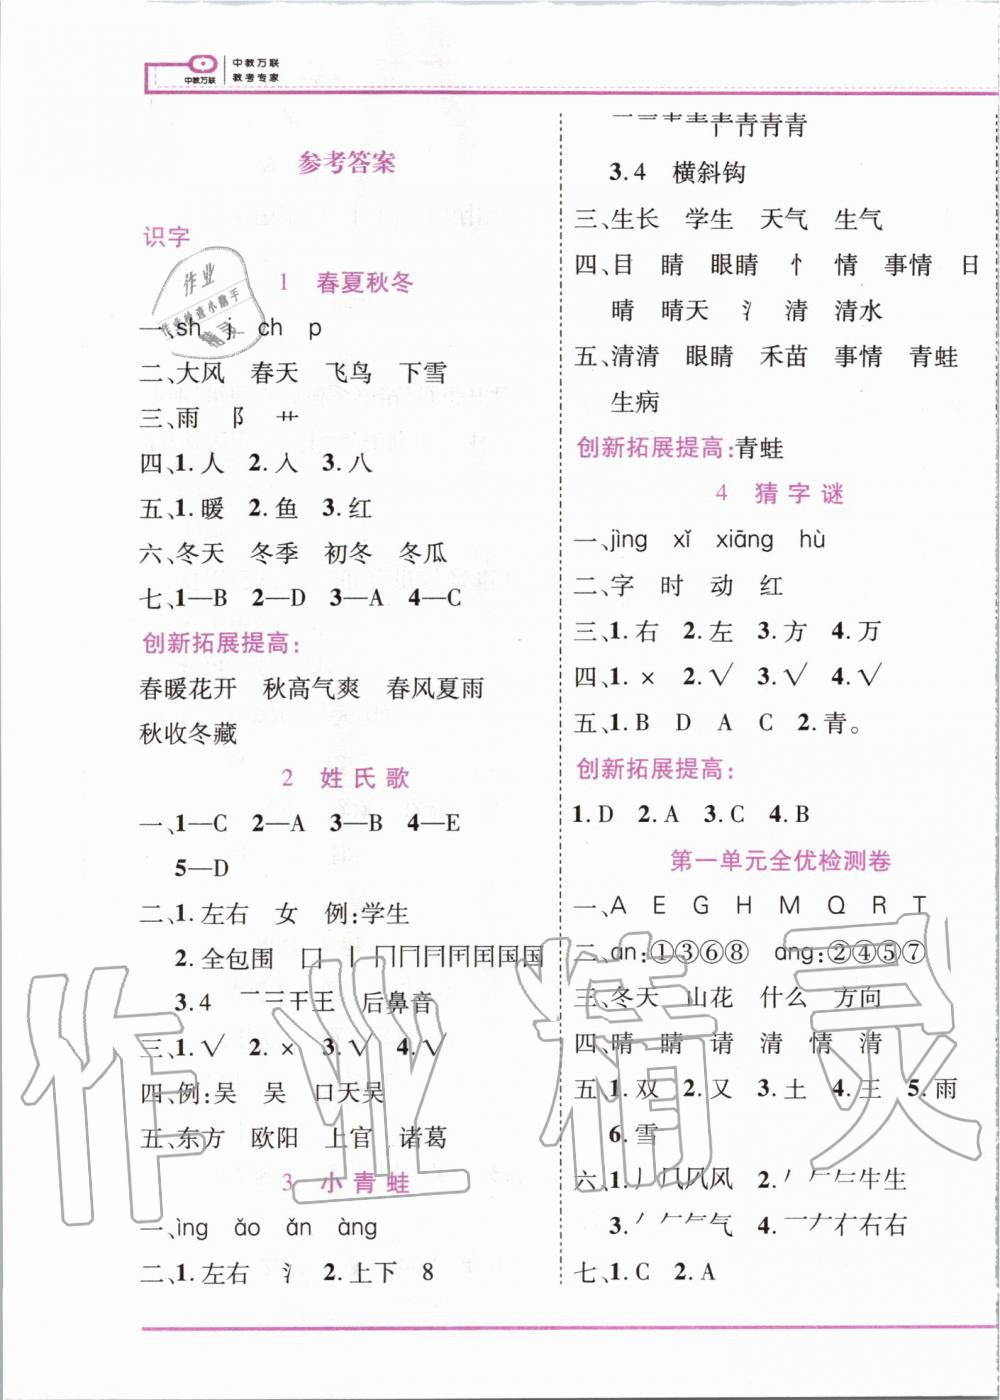 中教万联
中教万联
教考专家
参考答案
识字
1 春夏秋冬
一、sh j ch p
二、大风 春天 飞鸟 下雪
三、雨 阝 艹
四、1.人 2.入 3.八
五、1.暖 2.鱼 3.红
六、冬天 冬季 初冬 冬瓜
七、1—B 2—D 3—A 4—C
创新拓展提高:
春暖花开 秋高气爽 春风夏雨
秋收冬藏
2 姓氏歌
一、1—C 2—A 3—B 4—E
5—D
二、1.左右 女 例:学生
2.全包围 国
3.4 一二干王 后鼻音
三、1.√ 2.× 3.√ 4.√
四、例:吴 吴 口天吴
五、东方 欧阳 上官 诸葛
3 小青蛙
一、ìng ǎo ǎn àng
二、1.左右 氵 2.上下 8
青青青
3.4 横斜钩
三、生长 学生 天气 生气
四、目 睛 眼睛 忄 情 事情 日
晴 晴天 氵 清 清水
五、清清 眼睛 禾苗 事情 青蛙
生病
创新拓展提高:青蛙
4 猜字谜
一、jìng xǐ xiāng hù
二、字 时 动 红
三、1.右 2.左 3.方 4.万
四、1.× 2.√ 3.√ 4.√
五、1.B D A C 2.青。
创新拓展提高:
1.D 2.A 3.C 4.B
第一单元全优检测卷
一、A E G H M Q R T
二、an:①③⑥⑧ ang:②④⑤⑦
三、冬天 山花 什么 方向
四、晴 睛 请 清 情 清
五、1.双 2.又 3.土 4.王 5.雨
6.雪
六、1.丿几风风 2.丿𠂉牛生
3.丿𠂉气 4.一ナ右右
七、1.C 2.A
作业精灵